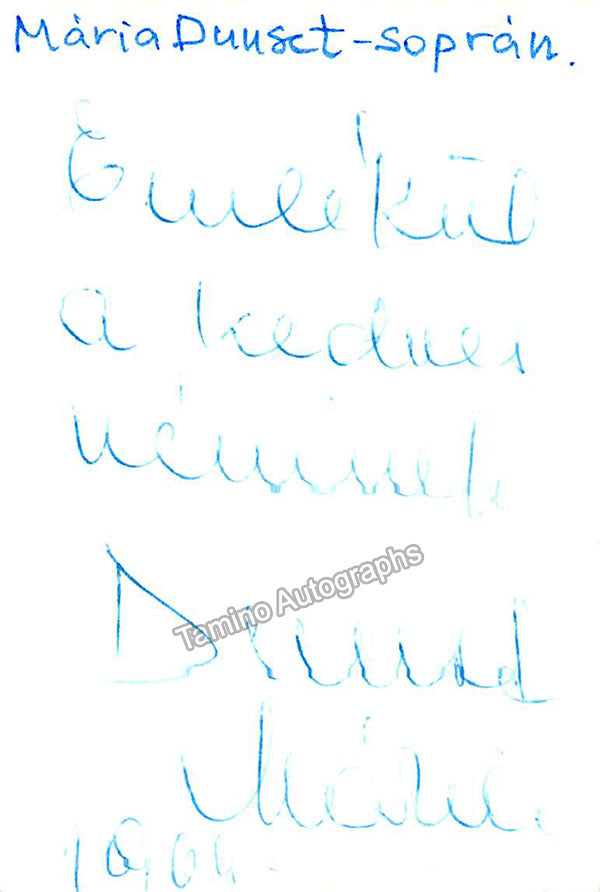 Mária Dunszt - soprán.
Emlékül
a kedves
néninek
Dunszt
Mária
Tamino Autographs